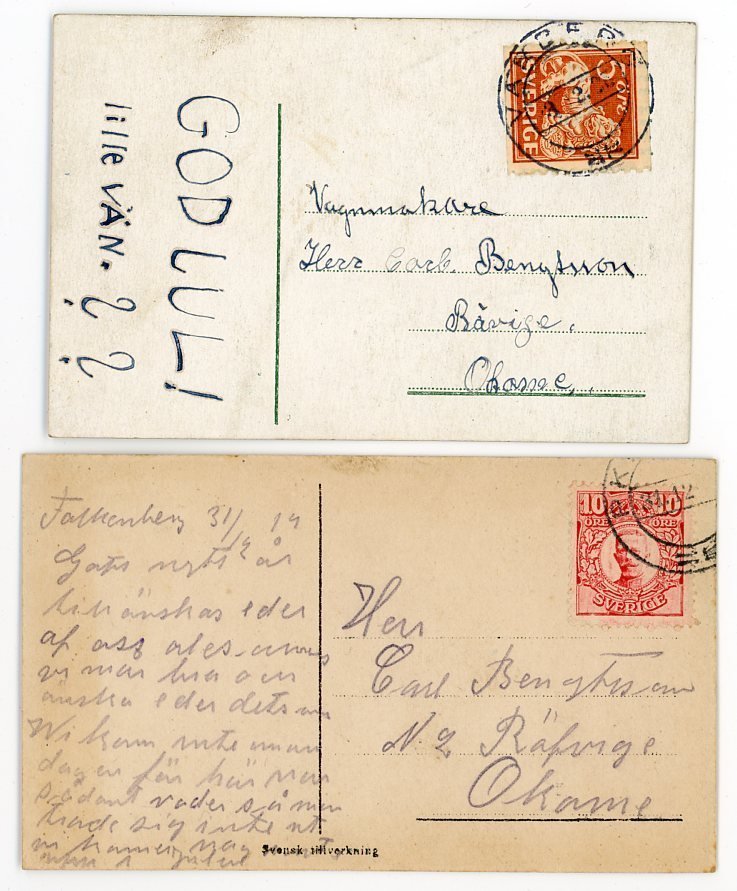 GOD LUL!
lille VÄN. ? ?
5 öre
SVERIGE
Vagnmakare
Herr Carl. Bengtsson
Rävige.
Okome.
Falkenberg 31/12 19
Gott nytt år
tillönskas eder
af oss alesamns
vi mår bra och
önska eder detsam
Wi kom inte annan
dagen för här var
sådant väder så man
trode sig inte ut
vi kommer nog
10 10
ÖRE ÖRE
SVERIGE
Herr
Carl Bengtsson
N 2 Räfvige
Okome
Svensk tillverkning